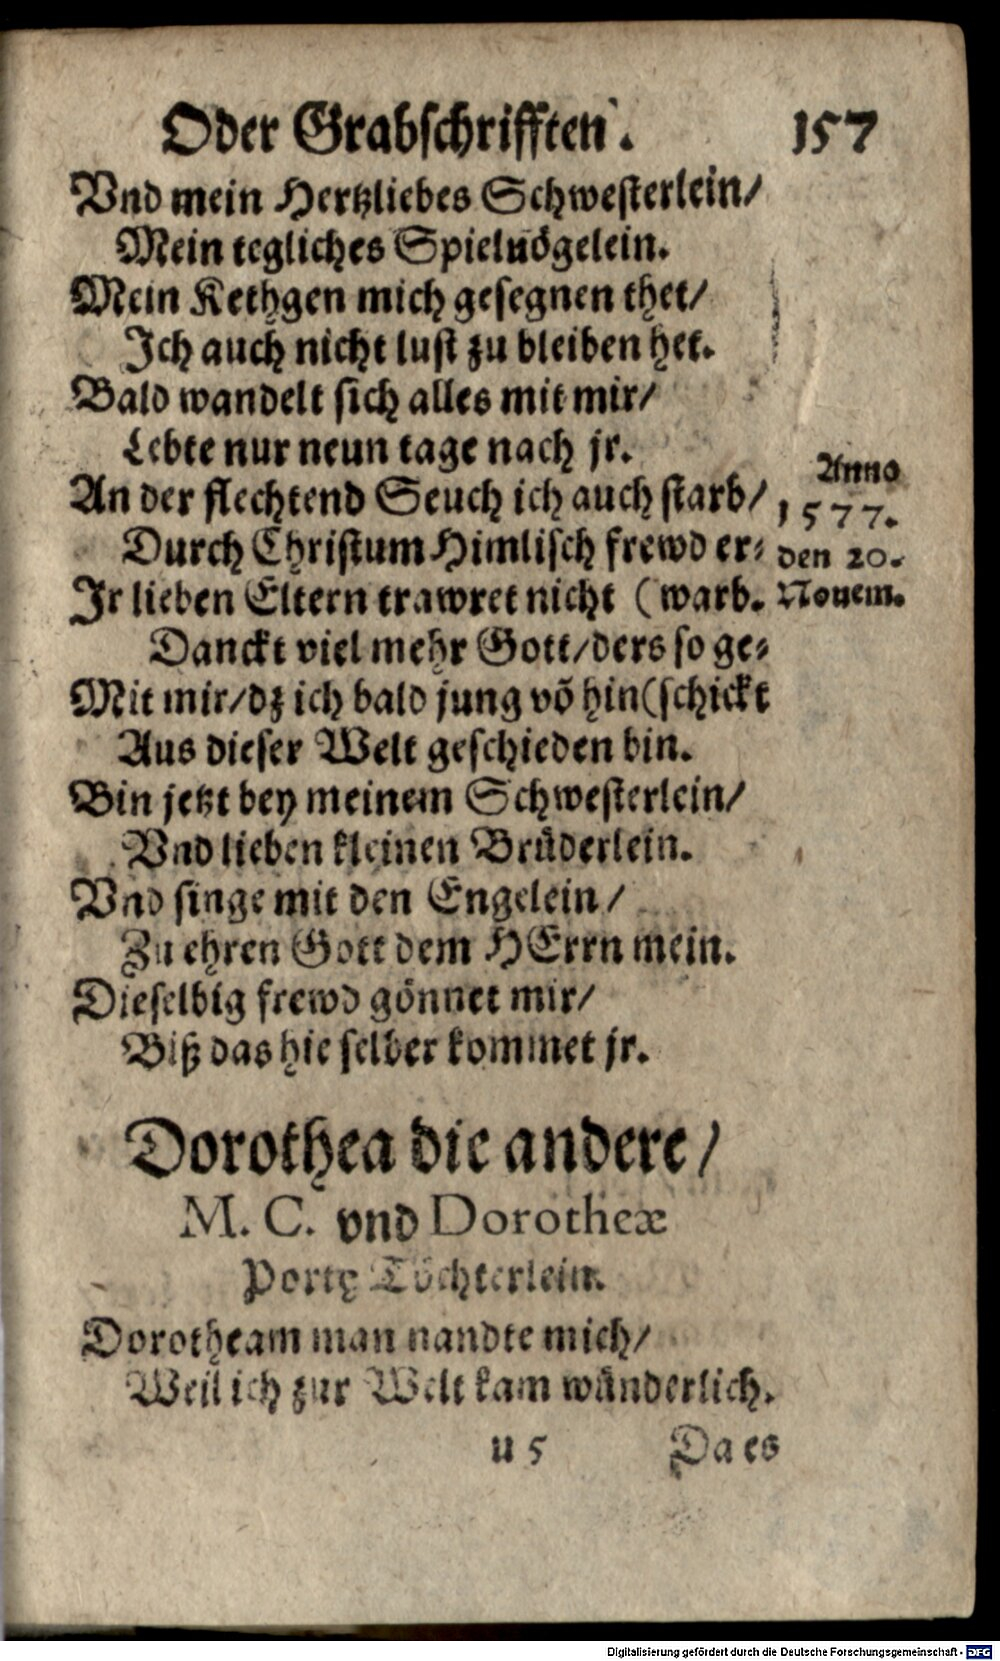 Oder Grabschrifften. 157
Vnd mein Hertzliebes Schwesterlein/
Mein tegliches Spieluögelein.
Mein Kethgen mich gesegnen thet/
Ich auch nicht lust zu bleiben het.
Bald wandelt sich alles mit mir/
Lebte nur neun tage nach jr.
An der flechtend Seuch ich auch starb/
Durch Christum Himlisch frewd er-
Ir lieben Eltern trawret nicht (warb.
Anno
1577.
den 20.
Nouem.
Danckt viel mehr Gott/ders so ge-
Mit mir/dz ich bald jung võ hin(schickt
Aus dieser Welt geschieden bin.
Bin jetzt bey meinem Schwesterlein/
Vnd lieben kleinen Brüderlein.
Vnd singe mit den Engelein/
Zu ehren Gott dem HErrn mein.
Dieselbig frewd gönnet mir/
Biß das hie selber kommet jr.
Dorothea die andere/
M. C. vnd Dorotheæ
Portę Töchterlein.
Dorotheam man nandte mich/
Weil ich zur Welt kam wünderlich.
u 5 Da es
Digitalisierung gefördert durch die Deutsche Forschungsgemeinschaft - DFG